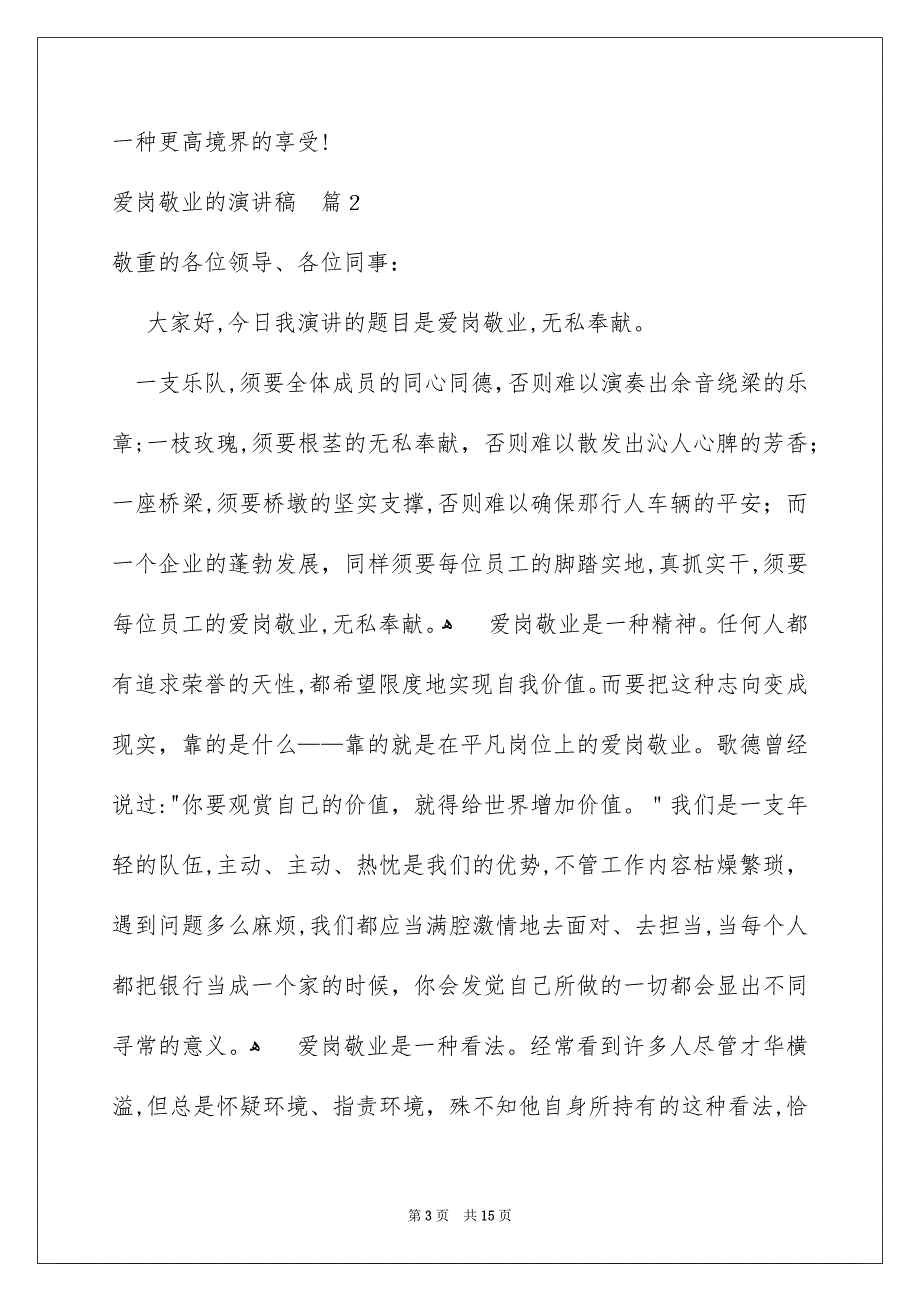 一种更高境界的享受!
爱岗敬业的演讲稿　篇 2
敬重的各位领导、各位同事：
大家好,今日我演讲的题目是爱岗敬业,无私奉献。
一支乐队,须要全体成员的同心同德,否则难以演奏出余音绕梁的乐
章;一枝玫瑰,须要根茎的无私奉献，否则难以散发出沁人心脾的芳香;
一座桥梁,须要桥墩的坚实支撑,否则难以确保那行人车辆的平安；而
一个企业的蓬勃发展，同样须要每位员工的脚踏实地,真抓实干,须要
每位员工的爱岗敬业,无私奉献。ﻫ　爱岗敬业是一种精神。任何人都
有追求荣誉的天性,都希望限度地实现自我价值。而要把这种志向变成
现实，靠的是什么——靠的就是在平凡岗位上的爱岗敬业。歌德曾经
说过:"你要观赏自己的价值，就得给世界增加价值。＂我们是一支年
轻的队伍,主动、主动、热忱是我们的优势,不管工作内容枯燥繁琐，
遇到问题多么麻烦,我们都应当满腔激情地去面对、去担当,当每个人
都把银行当成一个家的时候，你会发觉自己所做的一切都会显出不同
寻常的意义。ﻫ　爱岗敬业是一种看法。经常看到许多人尽管才华横
溢,但总是怀疑环境、指责环境，殊不知他自身所持有的这种看法,恰
第 3 页　共 15 页